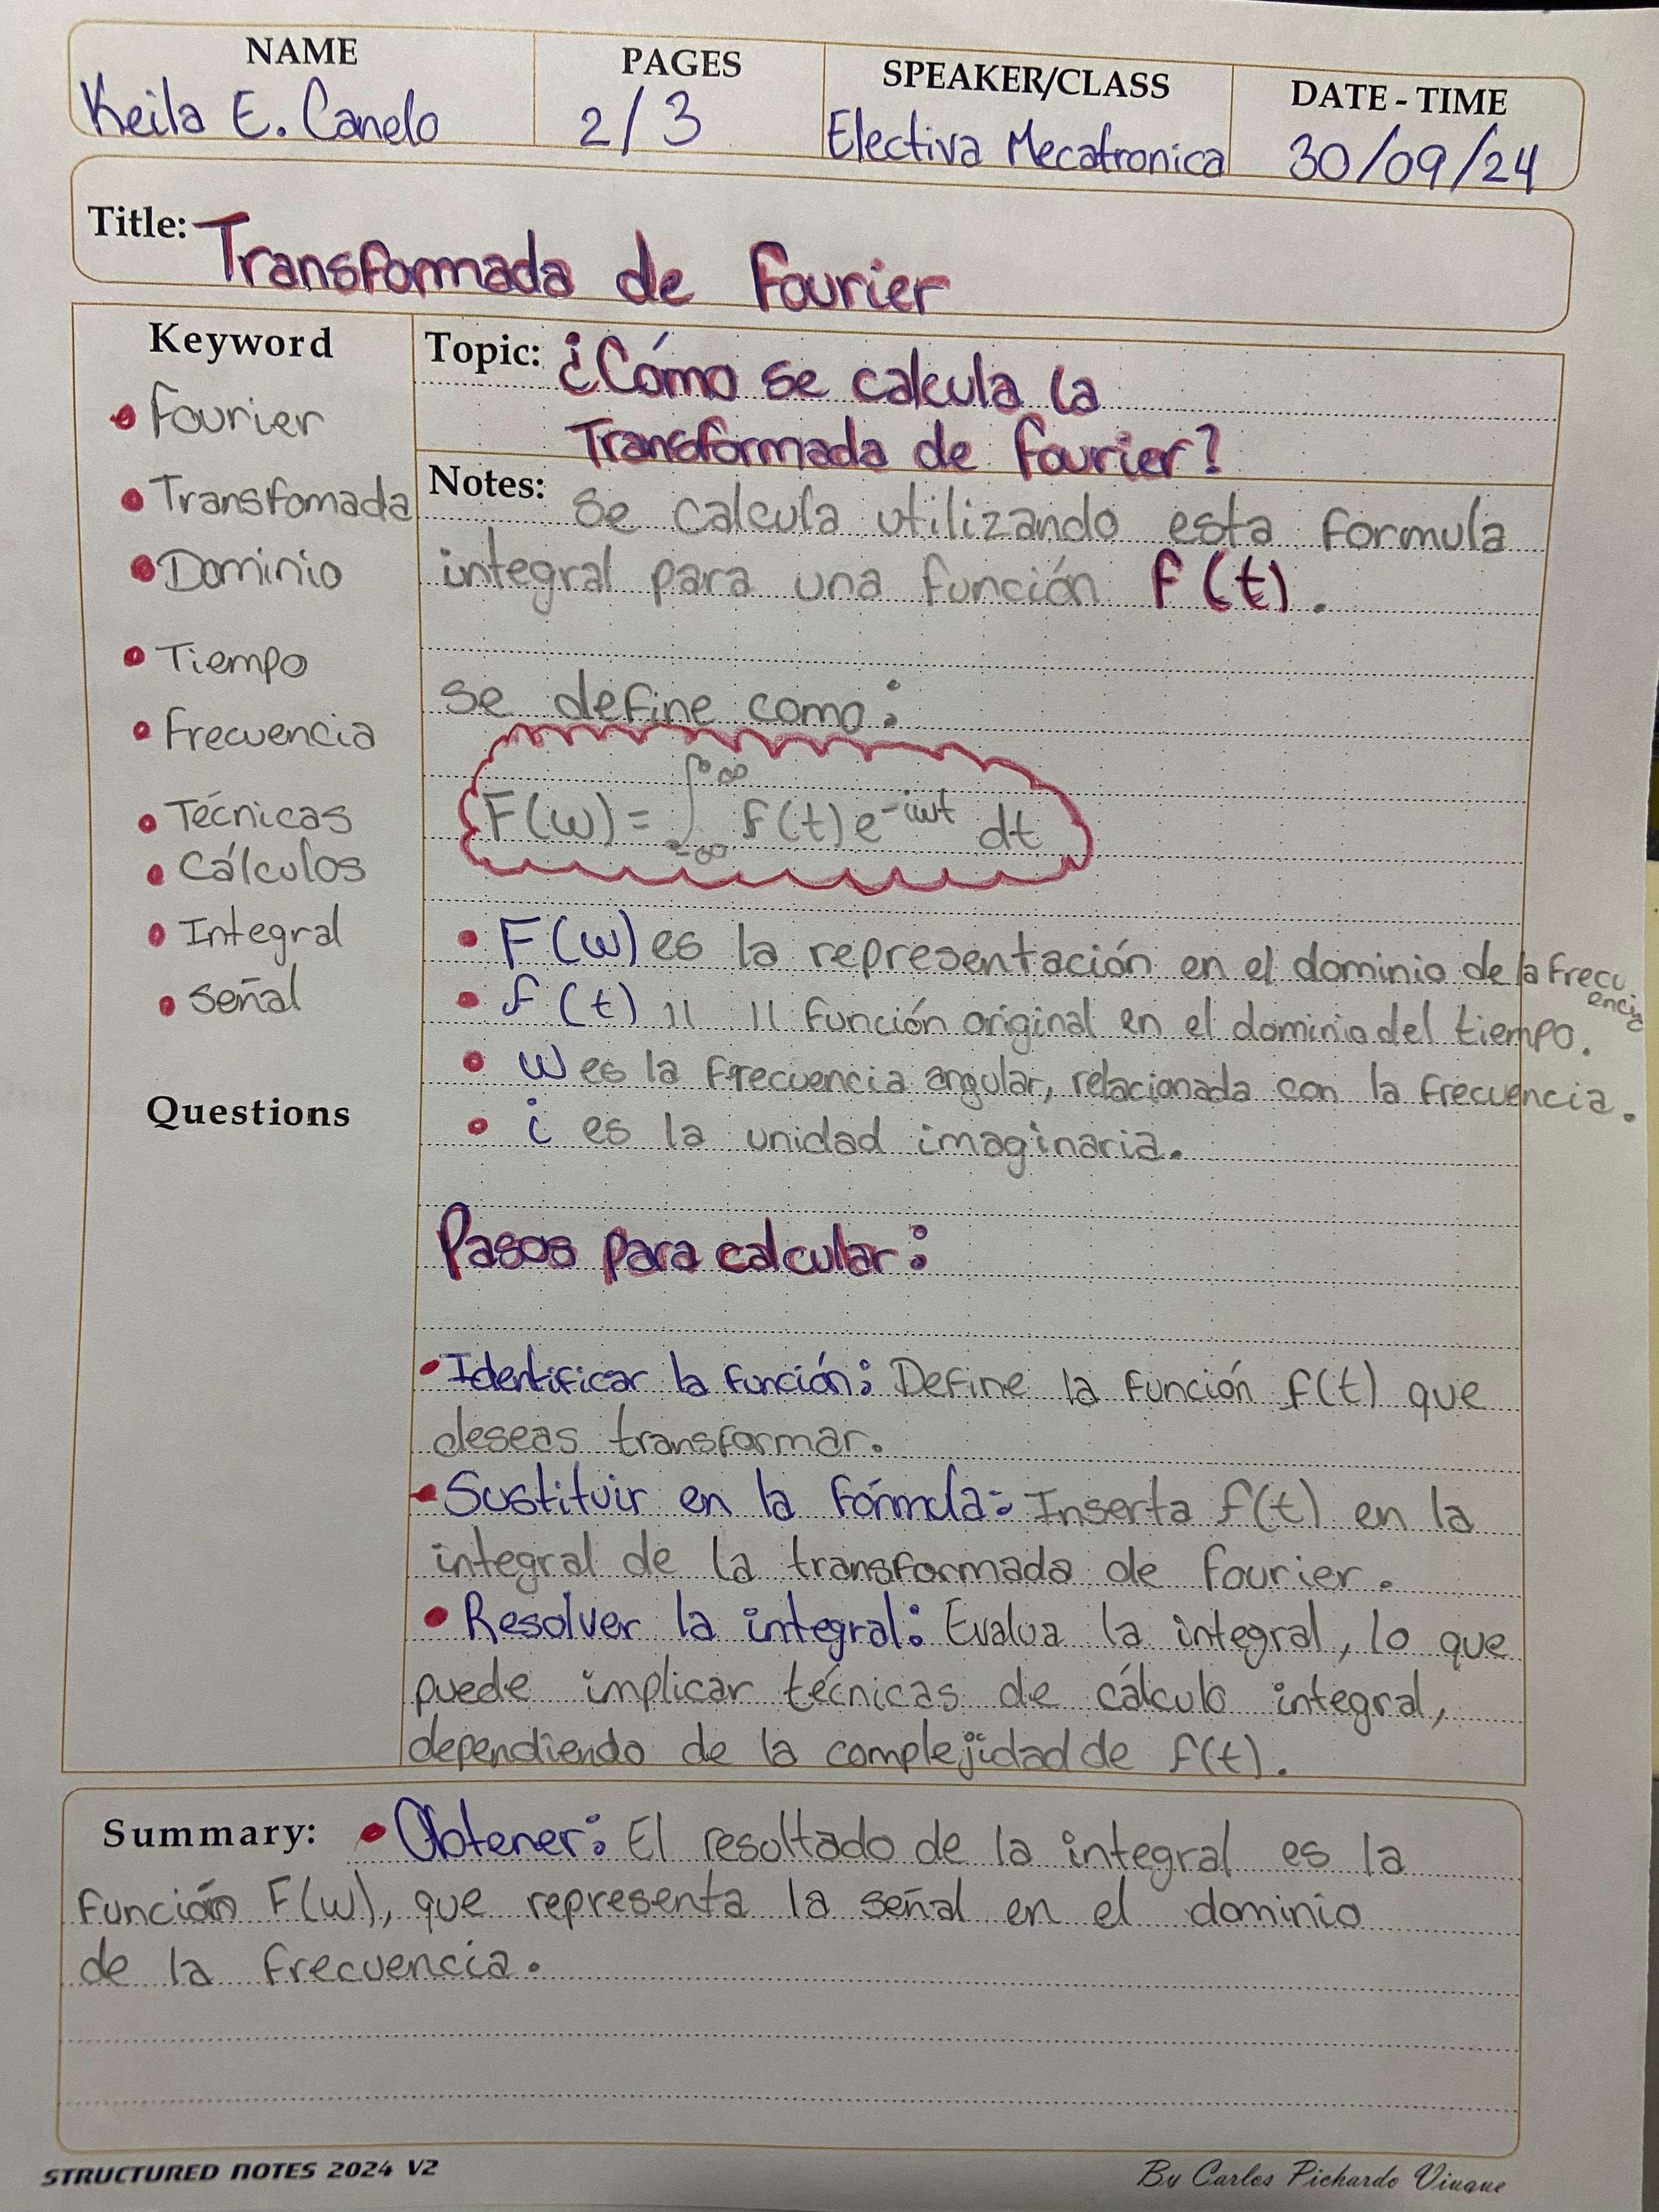 NAME
Keila E. Canelo
PAGES
2/3
SPEAKER/CLASS
Electiva Mecatronica
DATE - TIME
30/09/24
Title: Transformada de Fourier
Keyword
• Fourier
• Transfomada
• Dominio
• Tiempo
• Frecuencia
• Técnicas
• Cálculos
• Integral
• Señal
Questions
Topic: ¿Cómo se calcula la
Transformada de Fourier?
Notes: Se calcula utilizando esta formula
integral para una función F(t).
Se define como:
F(ω) = ∫_{-∞}^{∞} f(t) e^{-iωt} dt
• F(ω) es la representación en el dominio de la Frecuencia
• f(t) 11 11 función original en el dominio del tiempo.
• ω es la Frecuencia angular, relacionada con la frecuencia.
• i es la unidad imaginaria.
Pasos para calcular:
• Identificar la función: Define la función f(t) que
deseas transformar.
• Sustituir en la fórmula: Inserta f(t) en la
integral de la transformada de Fourier.
• Resolver la integral: Evalua la integral, lo que
puede implicar técnicas de cálculo integral,
dependiendo de la complejidad de f(t).
Summary: • Obtener: El resultado de la integral es la
función F(ω), que representa la señal en el dominio
de la frecuencia.
STRUCTURED NOTES 2024 V2
By Carlos Pichardo Viuque